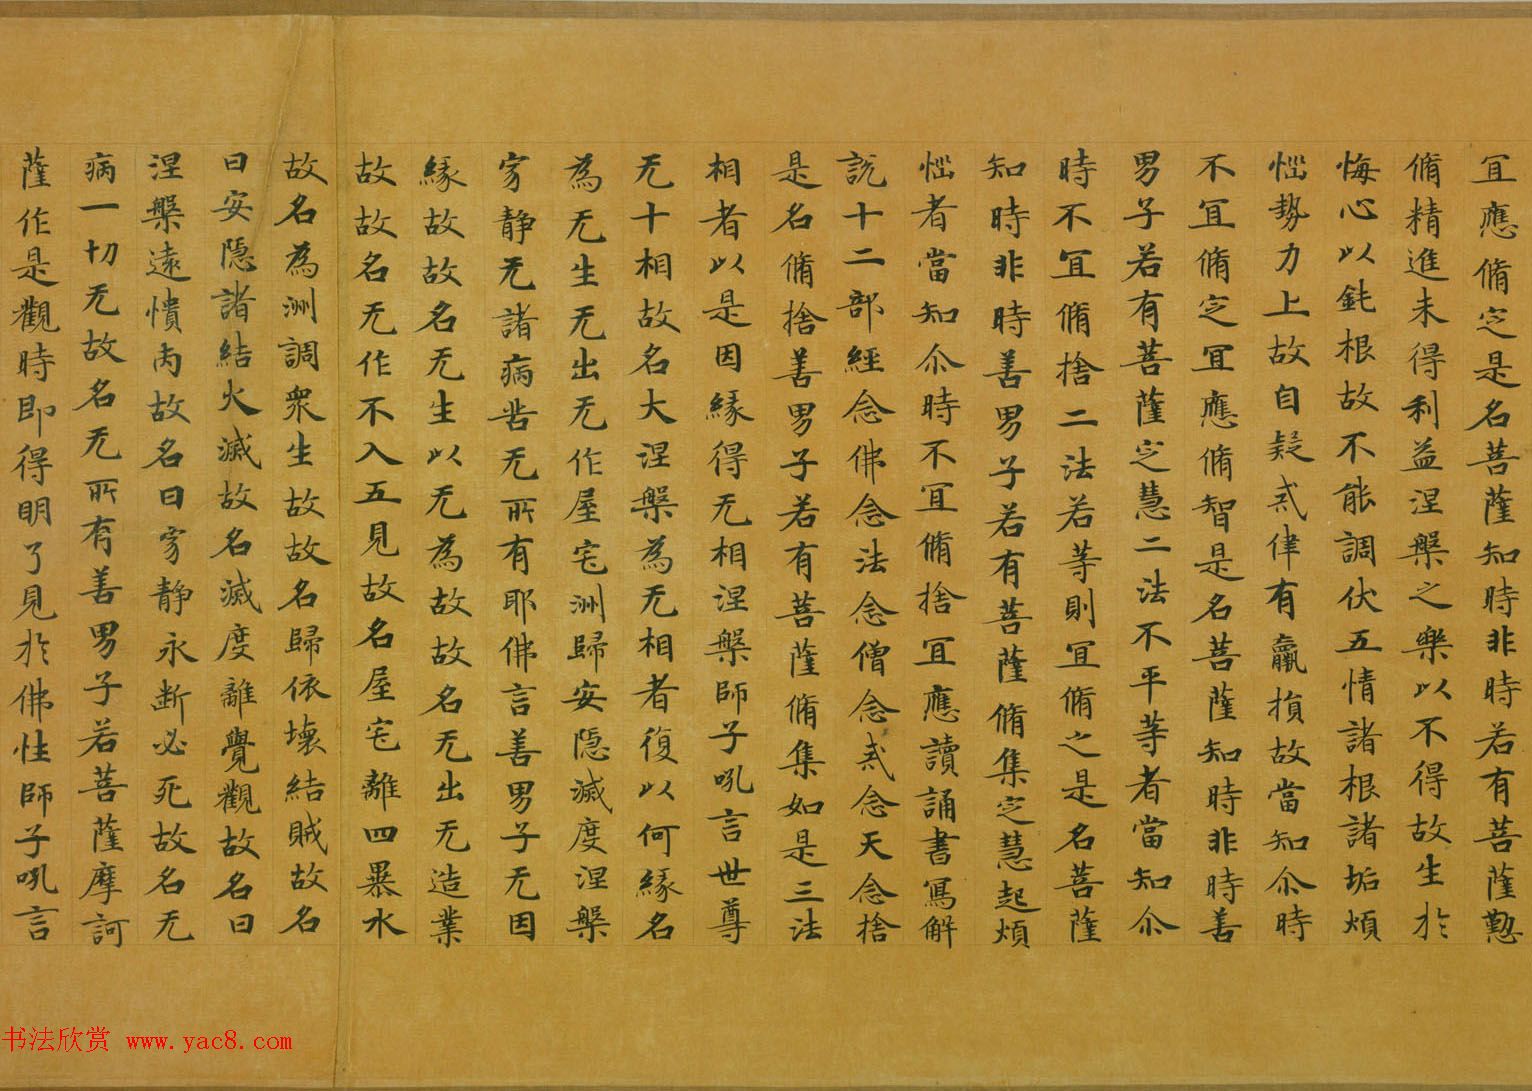 宜應脩定是名菩薩知時非時若有菩薩懃
脩精進未得利益涅槃之樂以不得故生於
悔心以鈍根故不能調伏五情諸根諸垢煩
惱勢力上故自疑戒律有羸損故當知尒時
不宜脩定宜應脩智是名菩薩知時非時善
男子若有菩薩定慧二法不平等者當知尒
時不宜脩捨二法若等則宜脩之是名菩薩
知時非時善男子若有菩薩脩集定慧起煩
惱者當知尒時不宜脩捨宜應讀誦書寫解
說十二部經念佛念法念僧念戒念天念捨
是名脩捨善男子若有菩薩脩集如是三法
相者以是因緣得无相涅槃師子吼言世尊
无十相故名大涅槃為无相者復以何緣名
為无生无出无作屋宅洲歸安隱滅度涅槃
㝛靜无諸病苦无所有耶佛言善男子无因
緣故故名无生以无為故故名无出无造業
故故名无作不入五見故名屋宅離四暴水
故名為洲調衆生故故名歸依壞結賊故名
曰安隱諸結火滅故名滅度離覺觀故名曰
涅槃遠憒丙故名曰㝛靜永斷必死故名无
病一切无故名无所有善男子若菩薩摩訶
薩作是觀時即得明了見於佛性師子吼言
书法欣赏 www.yac8.com